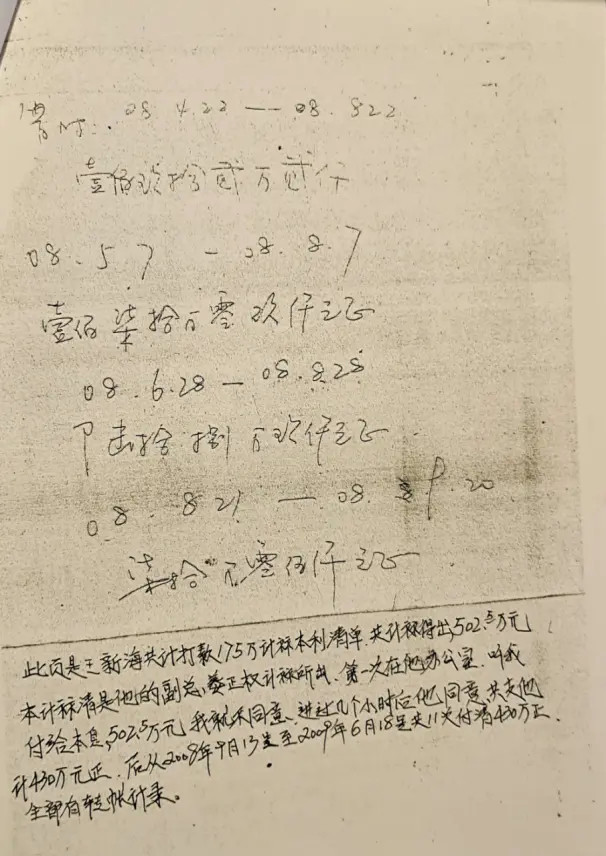 08.4.22 — 08.822
壹佰玖拾贰万贰仟
08.5.7 — 08.8.7
壹佰柒拾万零玖仟元正
08.6.28 — 08.828
拾捌万玖仟元正
08.821 — 08.9.20
柒拾万零伍仟元正
此页是王新海共计打款175万计标本利清单.共计标得出502.5万元
本计标清是他的副总,娄正权计标所出、第一次在他办公室.叫我
付给本息,502.5万元我就不同意、进过几个小时后他同意共支他
计430万元正.后从2008年9月13号至2009年6月18号共11次付清430万正.
全部有转帐计录。